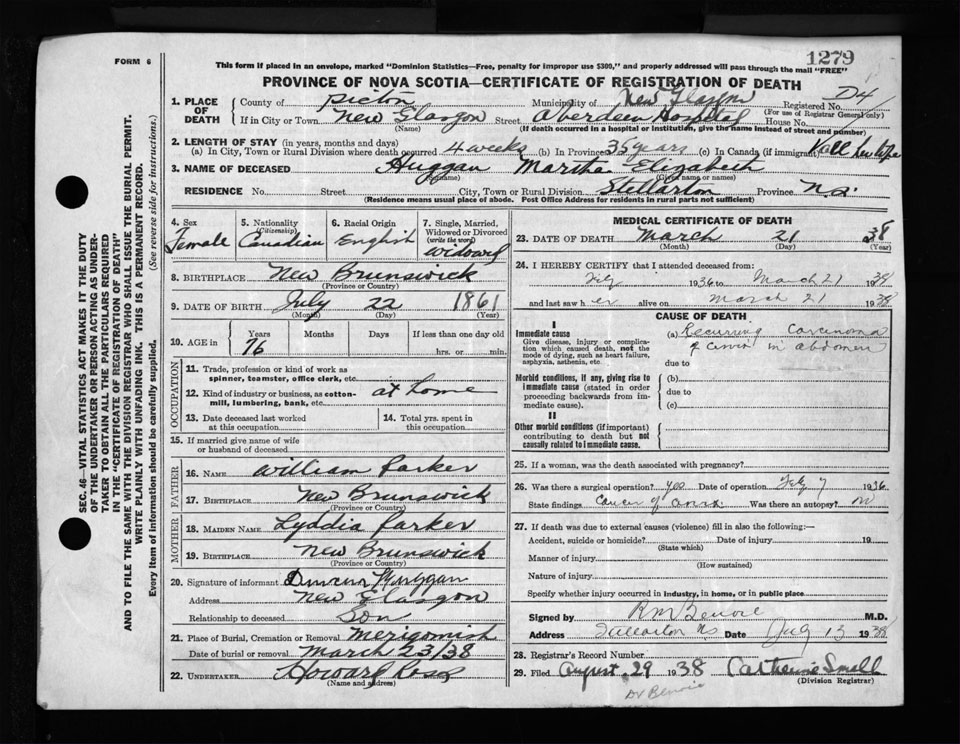 1279
FORM 6
This form if placed in an envelope, marked "Dominion Statistics—Free, penalty for improper use $300," and properly addressed will pass through the mail "FREE"
PROVINCE OF NOVA SCOTIA—CERTIFICATE OF REGISTRATION OF DEATH
SEC. 46—VITAL STATISTICS ACT MAKES IT THE DUTY
OF THE UNDERTAKER OR PERSON ACTING AS UNDER-
TAKER TO OBTAIN ALL THE PARTICULARS REQUIRED
IN THE "CERTIFICATE OF REGISTRATION OF DEATH"
AND TO FILE THE SAME WITH THE DIVISION REGISTRAR WHO SHALL ISSUE THE BURIAL PERMIT.
WRITE PLAINLY WITH UNFADING INK. THIS IS A PERMANENT RECORD.
Every item of information should be carefully supplied. (See reverse side for Instructions.)
1. PLACE OF DEATH County of Pictou Municipality of New Glasgow Registered No. D4
(For use of Registrar General only)
If in City or Town New Glasgow Street Aberdeen Hospital House No.
(Name) (If death occurred in a hospital or institution, give the name instead of street and number)
2. LENGTH OF STAY (in years, months and days)
(a) In City, Town or Rural Division where death occurred 4 weeks (b) In Province 35 years (c) In Canada (if immigrant) all her life
3. NAME OF DECEASED Huggan Martha Elizabeth
(Given names)
RESIDENCE No. Street City, Town or Rural Division Stellarton Province N.S.
(Residence means usual place of abode. Post Office Address for residents in rural parts not sufficient)
4. Sex Female
5. Nationality (Citizenship) Canadian
6. Racial Origin English
7. Single, Married, Widowed or Divorced (write the word) widowed
8. BIRTHPLACE New Brunswick
(Province or Country)
9. DATE OF BIRTH July 22 1861
(Month) (Day) (Year)
10. AGE in Years 76 Months Days If less than one day old hrs. or min.
OCCUPATION
11. Trade, profession or kind of work as
spinner, teamster, office clerk, etc.
12. Kind of industry or business, as cotton-
mill, lumbering, bank, etc. at home
13. Date deceased last worked
at this occupation
14. Total yrs. spent in
this occupation
15. If married give name of wife
or husband of deceased
FATHER
16. NAME William Parker
17. BIRTHPLACE New Brunswick
(Province or Country)
MOTHER
18. MAIDEN NAME Lyddia Parker
19. BIRTHPLACE New Brunswick
(Province or Country)
20. Signature of informant Duncan Huggan
Address New Glasgow
Relationship to deceased Son
21. Place of Burial, Cremation or Removal Merigomish
Date of burial or removal March 23/38
22. UNDERTAKER Howard Ross
(Name and address)
MEDICAL CERTIFICATE OF DEATH
23. DATE OF DEATH March 21 38
(Month) (Day) (Year)
24. I HEREBY CERTIFY that I attended deceased from:
Feb 1936 to March 21 1938
and last saw her alive on March 21 1938
CAUSE OF DEATH
I
Immediate cause
Give disease, injury or complica-
tion which caused death, not the
mode of dying, such as heart failure,
asphyxia, asthenia, etc.
(a) Recurring Carcinoma
of cervix in abdomen
due to
Morbid conditions, if any, giving rise to
immediate cause (stated in order
proceeding backwards from im-
mediate cause).
(b)
due to
(c)
II
Other morbid conditions (if important)
contributing to death but not
causally related to immediate cause.
25. If a woman, was the death associated with pregnancy?
26. Was there a surgical operation? yes Date of operation Feb 7 1936
State findings Cancer of cervix Was there an autopsy? no
27. If death was due to external causes (violence) fill in also the following:—
Accident, suicide or homicide? Date of injury 19
(State which)
Manner of injury
(How sustained)
Nature of injury
Specify whether injury occurred in industry, in home, or in public place
Signed by R M Benvie M.D.
Address Stellarton NS Date July 13 1938
28. Registrar's Record Number
29. Filed August 29 1938 Catherine Small
(Division Registrar)
Dr Benvie